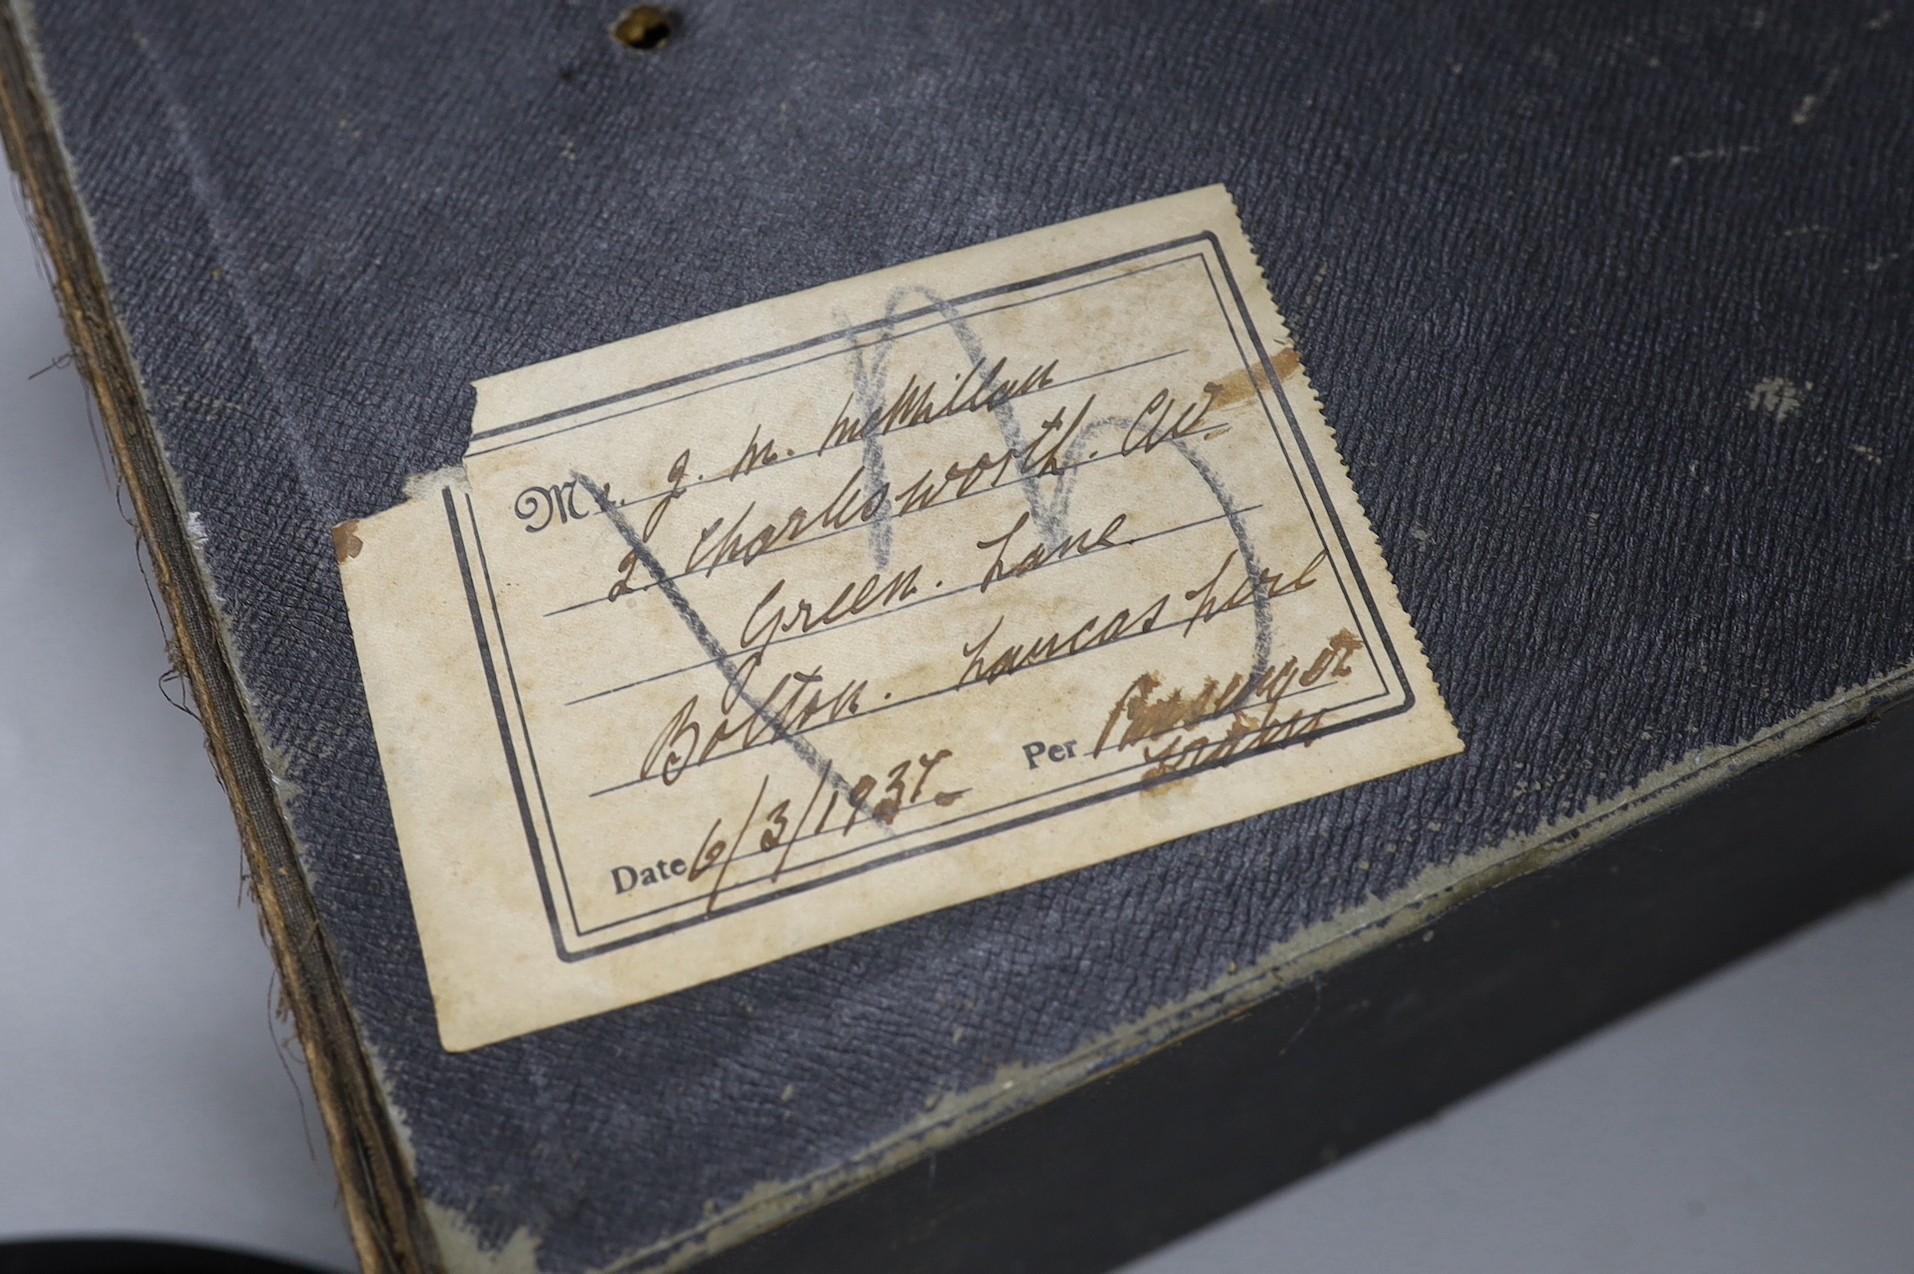 Mr. J. M. McMillan
2. Charlesworth. AV.
Green. Lane.
Bolton. Lancashire
Date 6/3/1937 Per Passenger
Train